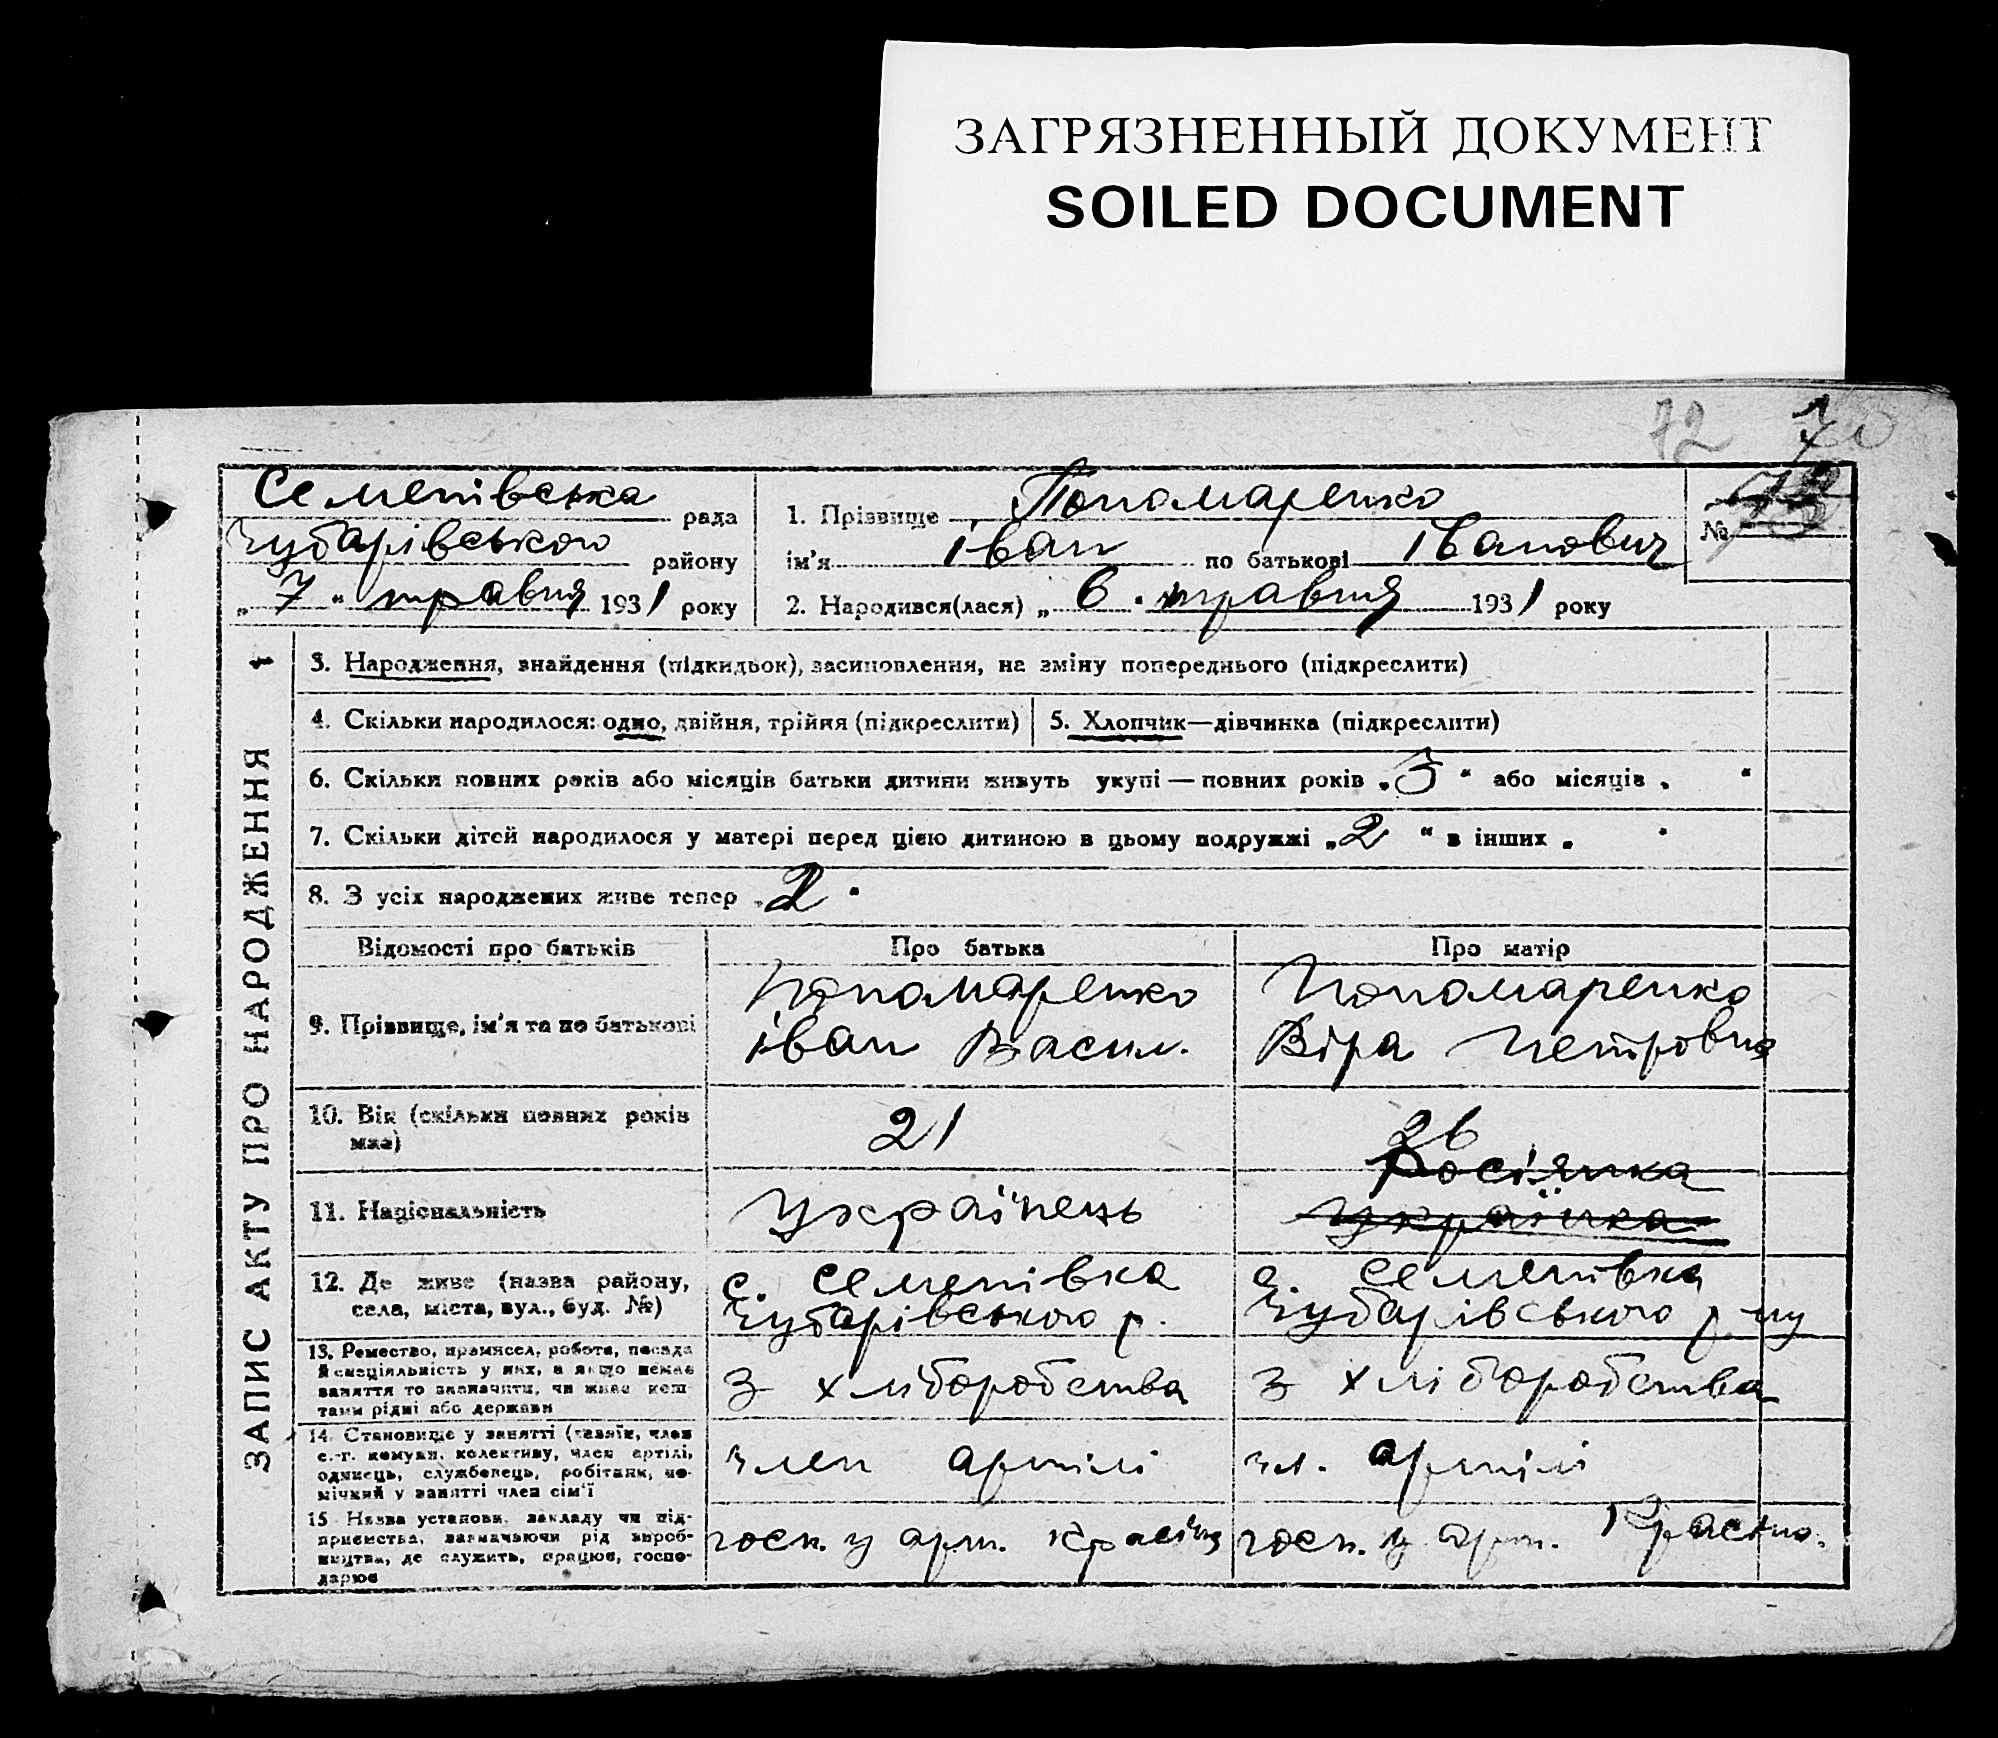 ЗАГРЯЗНЕННЫЙ ДОКУМЕНТ
SOILED DOCUMENT
72 70
Семенівська рада
Чубарівського району
„ 7 “ травня 1931 року
1. Прізвище Пономаренко
ім'я Іван по батькові Іванович
2. Народився(лася) „ 6 “ травня 1931 року
№
ЗАПИС АКТУ ПРО НАРОДЖЕННЯ
3. Народження, знайдення (підкидьок), засиновлення, на зміну попереднього (підкреслити)
4. Скільки народилося: одно, двійня, трійня (підкреслити)
5. Хлопчик—дівчинка (підкреслити)
6. Скільки повних років або місяців батьки дитини живуть укупі — повних років „ 3 “ або місяців „ “
7. Скільки дітей народилося у матері перед цією дитиною в цьому подружжі „ 2 “ в інших „ “
8. З усіх народжених живе тепер „ 2 “
Відомості про батьків Про батька Про матір
9. Прізвище, ім'я та по батькові
Пономаренко
Іван Васил.
Пономаренко
Віра Петровна
10. Вік (скільки повних років
має)
21
26
11. Національність
Українець
Росіянка
Українка
12. Де живе (назва району,
села, міста, вул., буд. №)
с. Семенівка
Чубарівського р.
с. Семенівка
Чубарівського р-ну
13. Ремество, промисел, робота, посада
й спеціяльність у них, а якщо немає
заняття то зазначити, чи живе кош-
тами рідні або держави
З хліборобства
З хліборобства
14. Становище у занятті (хазяїн, член
с.-г. комуни, колективу, член артілі,
одинець, службовець, робітник, по-
мічний у занятті член сім'ї
член артілі
чл. артілі
15. Назва установи, закладу чи під-
приємства, зазначаючи рід вироб-
ництва, де служить, працює, госпо-
дарює
госп. у арт.
госп. у арт.